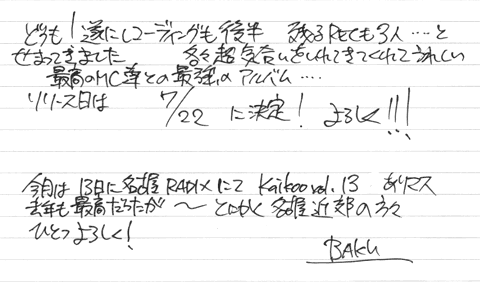 どうも！遂にレコーディングも後半 残るRECも3人…と
せまってきました 各々超気合いをいれてきてくれてうれしい
最高のMC達との最強のアルバム‥‥
リリース日は 7/22 に決定！ よろしく!!!
今月は13日に名古屋RADIXにて Kaikoo vol.13 ありマス
去年も最高だったが〜とにかく名古屋近郊の方々
ひとつよろしく！
BAKU